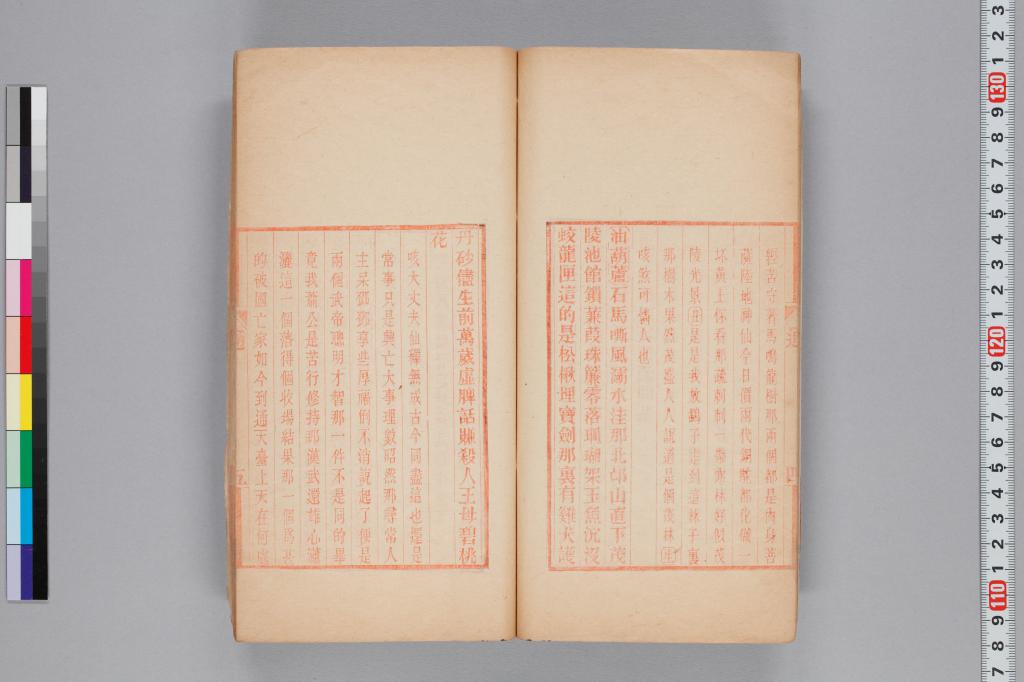 輕苦守著馬鳴龍樹那兩個都是肉身菩
薩陸地神仙今日價兩代銅駝都化做一
坏黃土你看那疏剌剌一帶樹林好似茂
陵光景丑是是我放鶴子走到這林子裏
那樹木果然茂盛人人說道是個茂林生
咳煞可憐人也
油葫蘆石馬嘶風灞水洼那北邙山直下茂
陵池館鎖蒹葭珠簾零落珊瑚架玉魚沉沒
蛟龍匣這的是松楸埋寶劍那裏有雞犬護
丹砂儘生前萬歲虛脾話賺殺人王母碧桃
花
咳大丈夫仙禪無成古今同盡這也還是
常事只是興亡大事理數昭然那尋常人
主呆鄧鄧享些厚福倒不消說起了便是
兩個武帝聰明才智那一件不是同的畢
竟我蕭公是苦行修持那漢武還雄心瀟
灑這一個落得個收場結果那一個為甚
的被國亡家如今到通天臺上天在何處
通
四
五